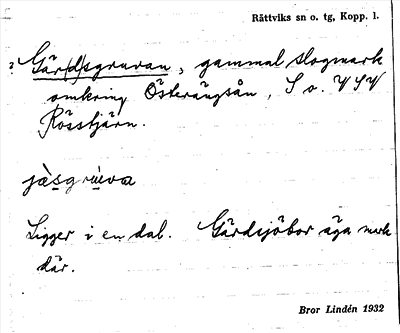 Rättviks sn o. tg, Kopp. l.
2 Gär(d)sgruvan, gammal slogmark
omkring Österängsån, S o. VSV
Rösstjärn.
jæ̀sgrùva
Ligger i en dal. Gärdsjöbor äga mark
där.
Bror Lindén 1932